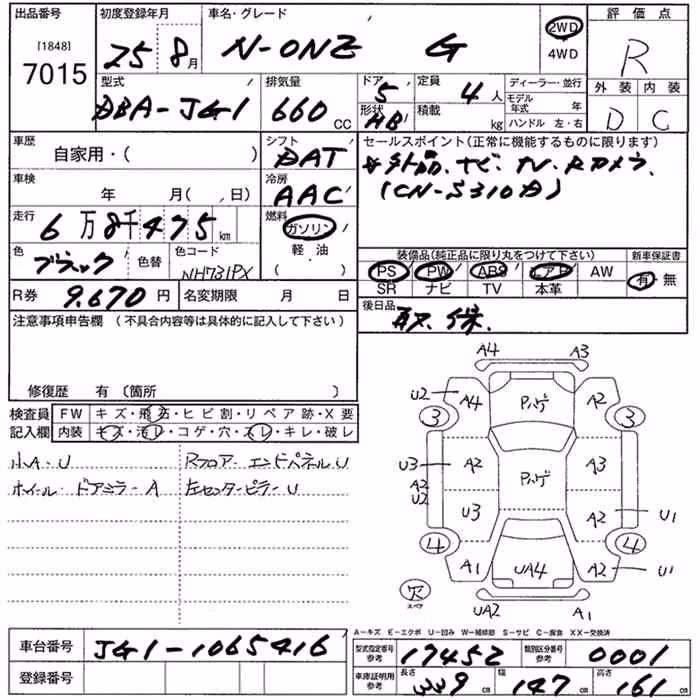 出品番号 初度登録年月 車名・グレード 評価点
[1848]
7015 25 8月 N-ONE G 2WD R
4WD
型式 排気量 ドア 定員 ディーラー・並行 外装 内装
DBA-JG1 660 CC 5 4人 モデル年式 年 D C
形状 HB 積載 kg ハンドル 左・右
車歴 シフト セールスポイント(正常に機能するものに限ります)
自家用・( ) DAT ナビ.TV.Rカメラ.
車検 冷房 (CN-S310D)
年 月( 、日) AAC
走行 燃料
6万8千475km ガソリン
色 色替 色コード 軽・油 装備品(純正品に限り丸をつけて下さい) 新車保証書
ブラック NH731PX (・) PS PW ABS エアB AW 有・無
SR ナビ TV 本革
R券 9.670円 名変期限 月 日 後日品
注意事項申告欄(不具合内容等は具体的に記入して下さい) 取.保.
修復歴 有〔箇所 〕
検査員 FW キズ・飛石・ヒビ割・リペア跡・X要
記入欄 内装 キズ・汚レ・コゲ・穴・スレ・キレ・破レ
小A・U Rフロア・エンドパネルU
ホイール・ドアミラーA 左センターピラーU
A4 A3
U2 A4 Pハゲ A2
3 3
U3 A2 Pハゲ A3
A2
U2
U3 A2 U1
4 4
A1 UA4 A2 U1
スペア UA2 A1
A-キズ E-エクボ U-凹み W-補修跡 S-サビ C-腐食 XX-交換済
車台番号 JG1-1065416 型式指定番号 参考 17452 類別区分番号 参考 0001
登録番号 車庫証明用 参考 長さ 339cm 幅 147cm 高さ 161cm